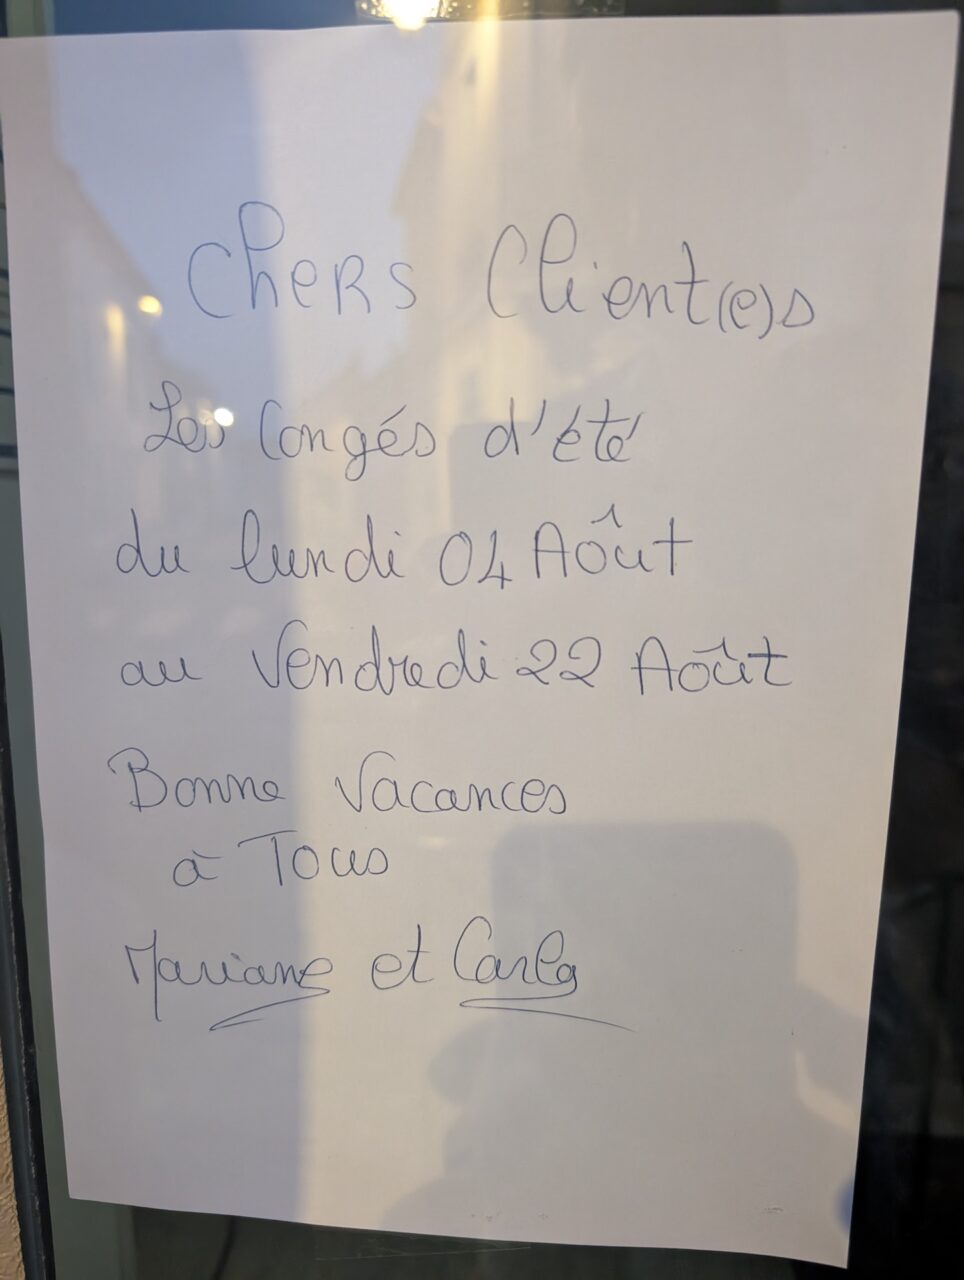 Chers Client(e)s
Les Congés d'été
du lundi 04 Août
au Vendredi 22 Août
Bonne Vacances
à Tous
Mariane et Carla